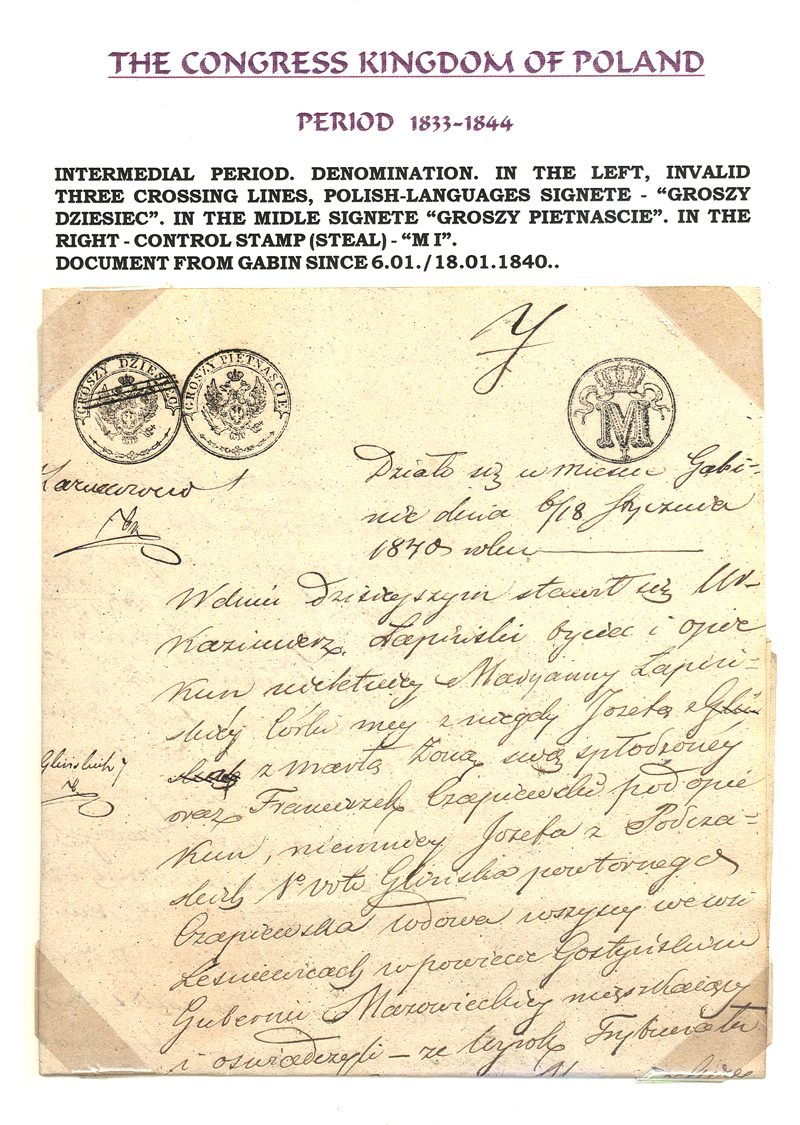 THE CONGRESS KINGDOM OF POLAND
PERIOD 1833-1844
INTERMEDIAL PERIOD. DENOMINATION. IN THE LEFT, INVALID
THREE CROSSING LINES, POLISH-LANGUAGES SIGNETE - “GROSZY
DZIESIEC”. IN THE MIDLE SIGNETE “GROSZY PIETNASCIE”. IN THE
RIGHT - CONTROL STAMP (STEAL) - “M I”.
DOCUMENT FROM GABIN SINCE 6.01./18.01.1840..
GROSZY DZIESIĘĆ
GROSZY PIĘTNAŚCIE
M
Działo się w mieście Gąbi-
nie dnia 6/18 Stycznia
1840 roku
W dniu dzisiejszym stawił się Ur.
Kazimierz Łapiński oyciec i opie
kun nieletniey Maryanny Łapiń-
skiéy Córki mey z niegdy Józefą z
zmarłą Żoną swą spłodzoney
oraz Franciszek Czapiewski podopie
kun, niemniey Józefa z Podcza-
skich 1o voto Glińska powtórnego
Czapiewska wdowa wszyscy we wsi
Leśniewicach w powiecie Gostyńskim
Gubernii Mazowieckiey mieszkaiący
i oświadczyli - że Trybunału